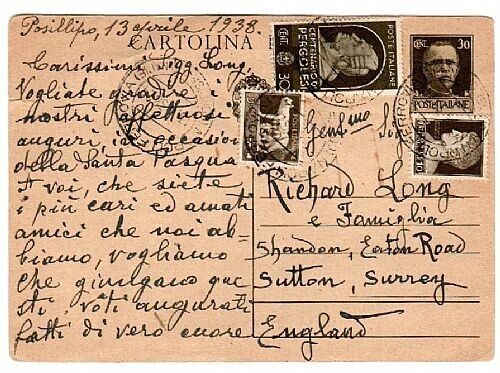 Posillipo, 13 aprile 1938.
CARTOLINA
Carissimi Sigg. Long,
Vogliate gradire i
nostri affettuosi
auguri, in occasione
della Santa Pasqua
A voi, che siete
i più cari ed amati
amici che noi ab-
biamo, vogliamo
che giungano que
sti voti augurali
fatti di vero cuore
CENTENARIO
PERGOLESI
CENT. 30
POSTE ITALIANE
CENT. 30
POSTE ITALIANE
Gent.mo Sig.
Richard Long
e Famiglia
Shandon, Eaton Road
Sutton, Surrey
England